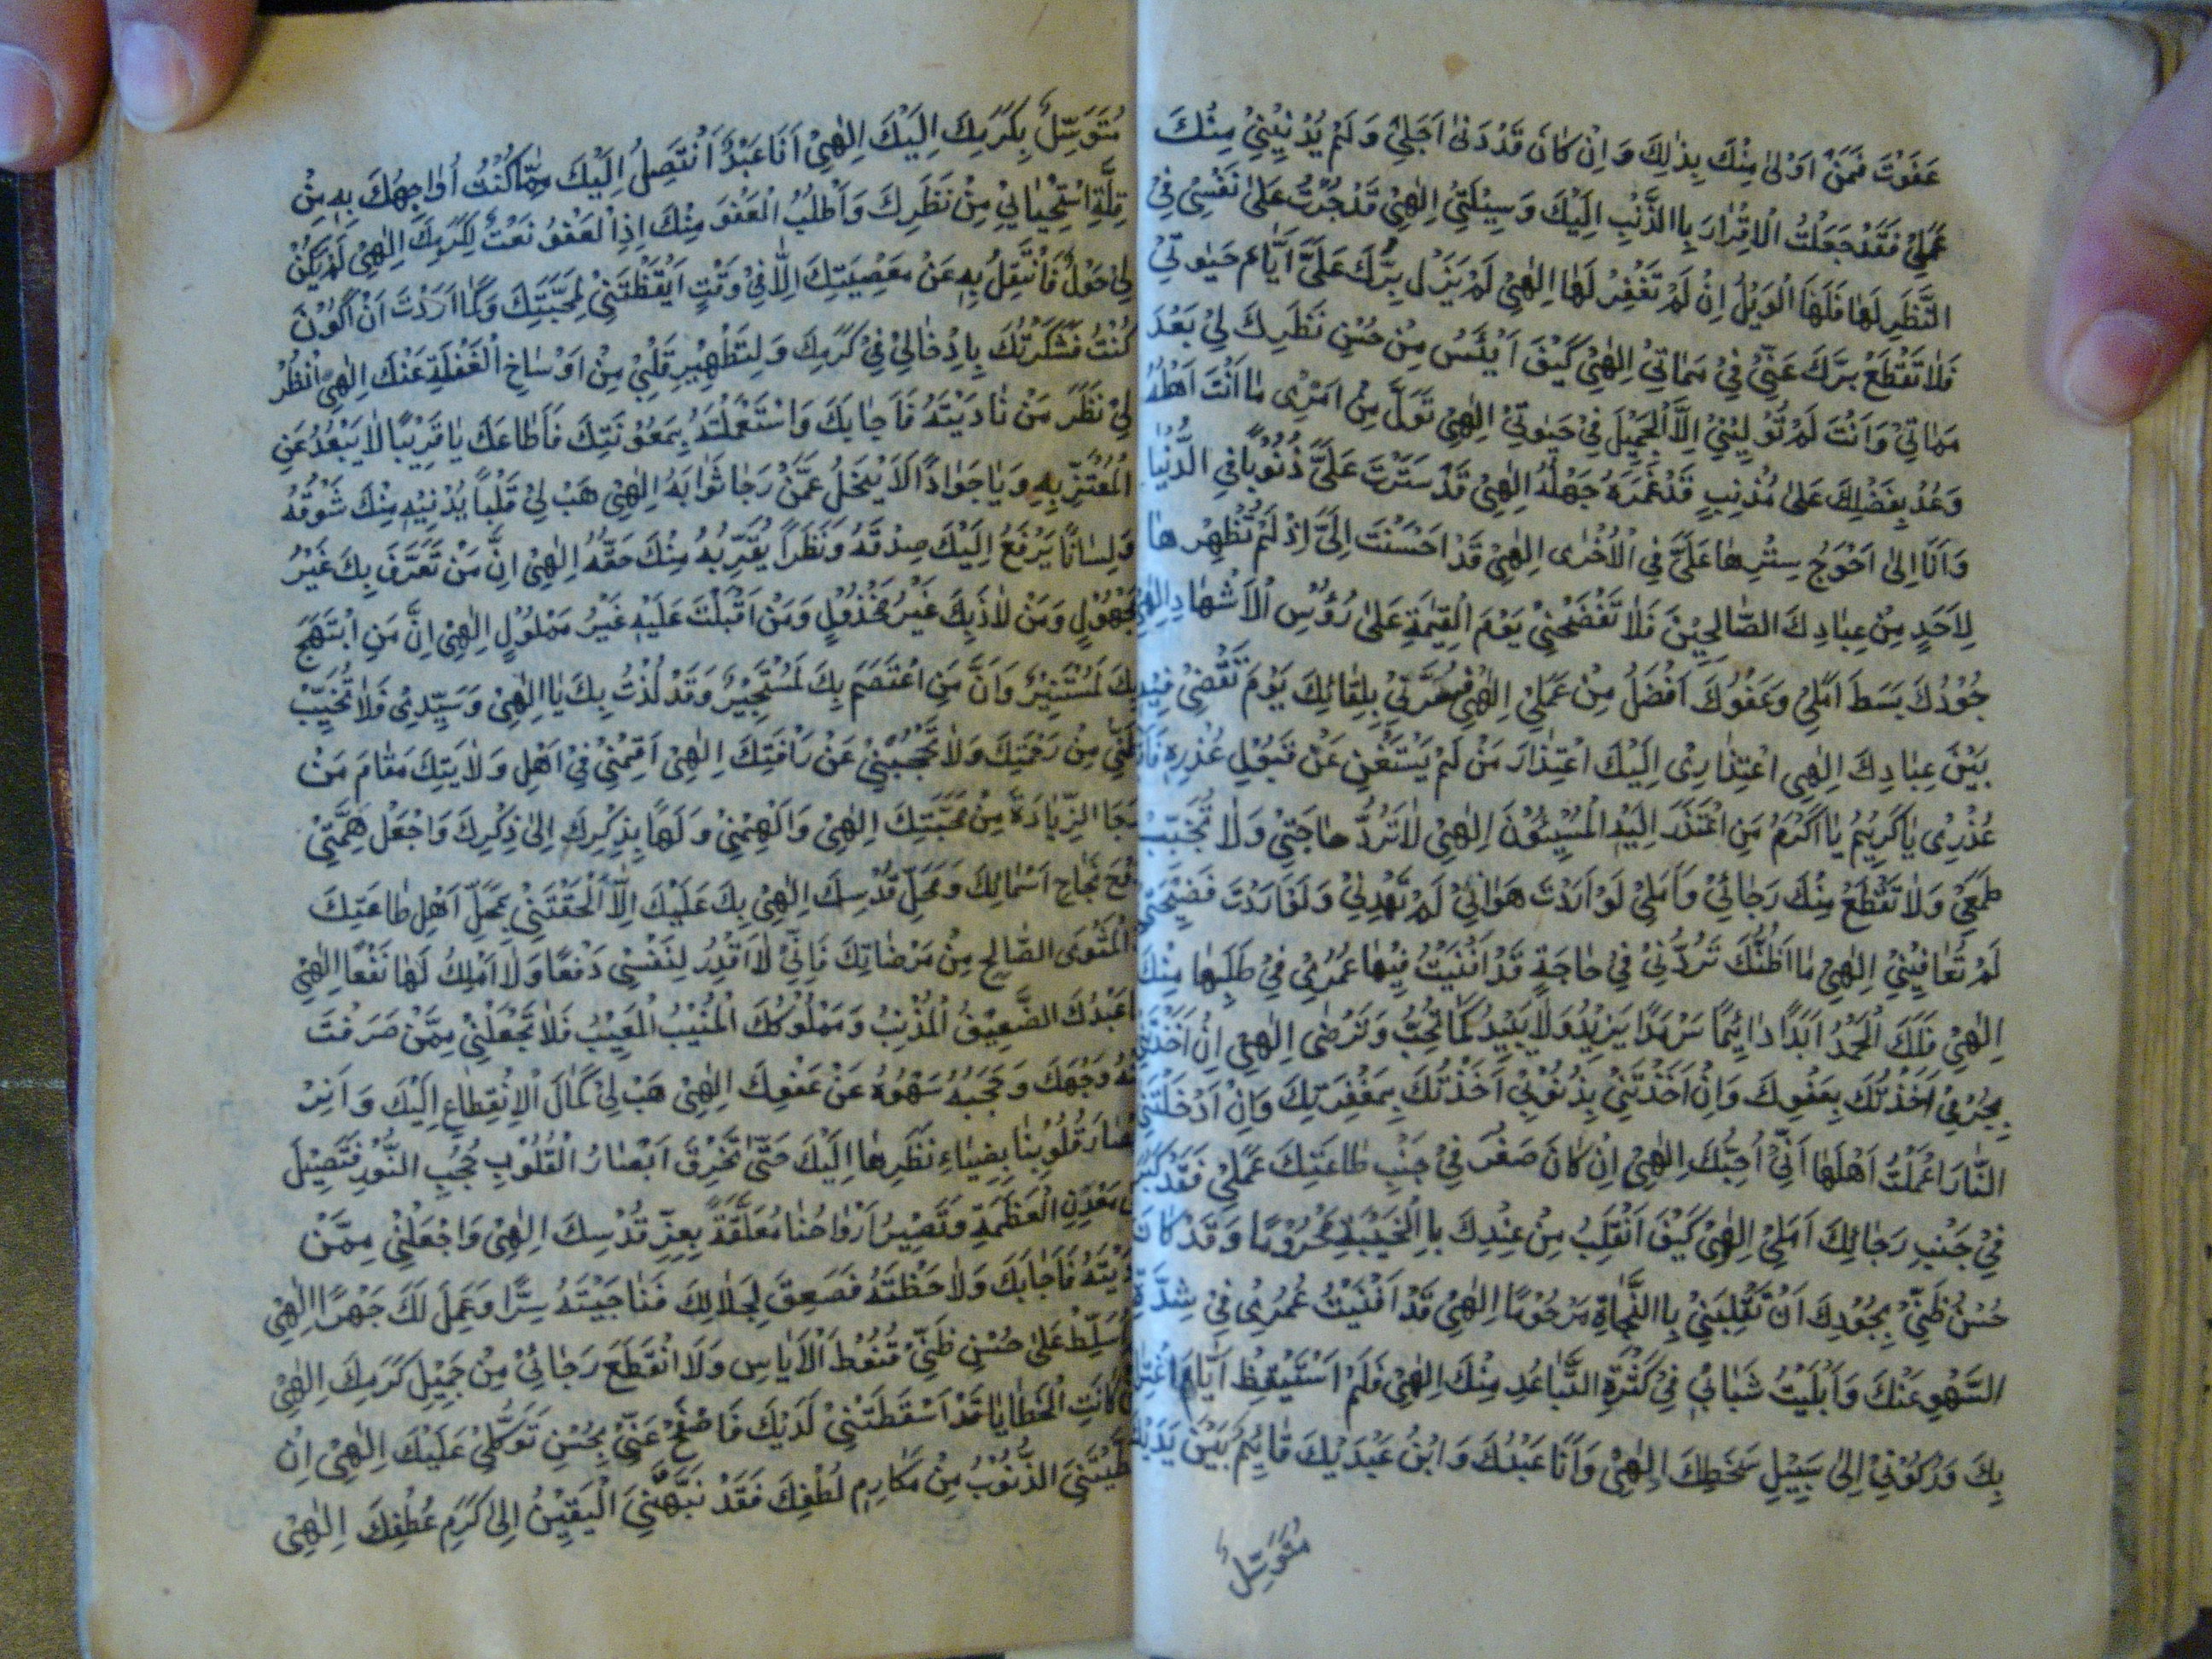 عَفَوْتَ فَمَنْ اَوْلىٰ مِنْكَ بِذٰلِكَ وَ اِنْ كٰانَ قَدْ دَنىٰ اَجَلىٖ وَ لَمْ يُدْنِيْنِيْ مِنْكَ
عَمَلِيْ فَقَدْ جَعَلْتُ الْاِقْرٰارَ بِاالذَّنْبِ اِلَيْكَ وَ سِيْلَتِيْ اِلٰهِيْ قَدْ جُرْتُ عَلىٰ نَفْسِيْ فِيْ
النَّظَرِ لَهٰا فَلَهَا الْوَيْلُ اِنْ لَمْ تَغْفِرْ لَهٰا اِلٰهِيْ لَمْ يَزَلْ بِرُّكَ عَلَيَّ اَيّٰامَ حَيٰوتِيْ
فَلٰا تَقْطَعْ بِرَّكَ عَنِّيْ فِيْ مَمٰاتِيْ اِلٰهِيْ كَيْفَ اٰيْئَسُ مِنْ حُسْنِ نَظَرِكَ لِيْ بَعْدَ
مَمٰاتِيْ وَ اَنْتَ لَمْ تُوَلِيْنِيْ اِلَّا الْجَمِيْلَ فِيْ حَيٰوتِيْ اِلٰهِيْ تَوَلَّ مِنْ اَمْرِىْ مٰا اَنْتَ اَهْلُهُ
وَعُدْ بِفَضْلِكَ عَلىٰ مُذْنِبٍ قَدْ غَمَرَهُ جَهْلُهُ اِلٰهِيْ قَدْ سَتَرْتَ عَلَيَّ ذُنُوْبًا فِي الدُّنْيٰا
وَ اَنَا اِلىٰ اَحْوَجُ سِتْرِهٰا عَلَيَّ فِي الْاُخْرٰى اِلٰهِيْ قَدْ اَحْسَنْتَ اِلَيَّ اِذْ لَمْ تُظْهِرْهٰا
لِاَحَدٍ مِنْ عِبٰادِكَ الصّٰالِحِيْنَ فَلٰا تَفْضَحْنِيْ يَوْمَ الْقِيٰمَةِ عَلىٰ رُؤُسِ الْاَشْهٰادِ اِلٰهِيْ
جُوْدُكَ بَسَطَ اَمَلِيْ وَ عَفْوُكَ اَفْضَلُ مِنْ عَمَلِيْ اِلٰهِيْ فَسُرَّنِيْ بِلِقٰائِكَ يَوْمَ تَقْضِيْ فِيْهِ
بَيْنَ عِبٰادِكَ اِلٰهِي اعْتِذٰارِيْ اِلَيْكَ اعْتِذٰارَ مَنْ لَمْ يَسْتَغْنِ عَنْ قَبُوْلِ عُذْرِهِ فَاقْبَلْ
عُذْرِىْ يٰا كَرِيْمُ يٰا اَكْرَمُ مَنِ اعْتَذَرَ اِلَيْهِ الْمُسِيْئُوْنَ اِلٰهِيْ لٰا تَرُدَّ حٰاجَتِيْ وَ لٰا تُخَيِّبْ
طَمَعِيْ وَ لٰا تَقْطَعْ مِنْكَ رَجٰائِيْ وَ اَمَلِيْ لَوْ اَرَدْتَ هَوٰانِيْ لَمْ تَهْدِنِيْ وَ لَوْ اَرَدْتَ فَضِيْحَتِيْ
لَمْ تُعٰافِيْنِيْ اِلٰهِيْ مٰا اَظُنُّكَ تَرُدُّنِيْ فِيْ حٰاجَةٍ قَدْ اَفْنَيْتُ فِيْهٰا عُمْرِيْ فِيْ طَلَبِهٰا مِنْكَ
اِلٰهِيْ فَلَكَ الْحَمْدُ اَبَدًا دٰائِمًا سَرْمَدًا يَزِيْدُ وَ لٰا يَبِيْدُ كَمٰا تُحِبُّ وَ تَرْضٰى اِلٰهِيْ اِنْ اَخَذْتَنِيْ
بِجُرْمِيْ اَخَذْتُكَ بِعَفْوِكَ وَ اِنْ اَخَذْتَنِيْ بِذُنُوْبِيْ اَخَذْتُكَ بِمَغْفِرَتِكَ وَ اِنْ اَدْخَلْتَنِيْ
النّٰارَ اَعْلَمْتُ اَهْلَهٰا اَنِّيْ اُحِبُّكَ اِلٰهِيْ اِنْ كٰانَ صَغُرَ فِيْ جَنْبِ طٰاعَتِكَ عَمَلِيْ فَقَدْ كَبُرَ
فِيْ جَنْبِ رَجٰائِكَ اَمَلِيْ اِلٰهِيْ كَيْفَ اَنْقَلِبُ مِنْ عِنْدِكَ بِاالْخَيْبَةِ مَحْرُوْمًا وَ قَدْ كٰانَ
حُسْنُ ظَنِّيْ بِجُوْدِكَ اَنْ تَقْلِبَنِيْ بِاالنَّجٰاةِ مَرْحُوْمًا اِلٰهِيْ قَدْ اَفْنَيْتُ عُمْرِيْ فِيْ شِدَّةِ
السَّهْوِ عَنْكَ وَ اَبْلَيْتُ شَبٰابِيْ فِيْ كَثْرَةِ التَّبٰاعُدِ مِنْكَ اِلٰهِيْ فَلَمْ اَسْتَيْقِظْ اَيّٰامَ
بِكَ وَ رُكُوْنِيْ اِلىٰ سَبِيْلِ سَخَطِكَ اِلٰهِيْ وَ اَنَا عَبْدُكَ وَ ابْنُ عَبْدَيْكَ قٰايِمٌ بَيْنَ يَدَيْكَ
مُتَوَسِّلٌ
مُتَوَسِّلٌ بِكَرَمِكَ اِلَيْكَ اِلٰهِيْ اَنَا عَبْدٌ اَنْتَصِلُ اِلَيْكَ مِمّٰا كُنْتُ اُوٰاجِهُكَ بِهِ مِنْ
قِلَّةِ اسْتِحْيٰائِيْ مِنْ نَظَرِكَ وَ اَطْلُبُ الْعَفْوَ مِنْكَ اِذِ الْعَفْوُ نَعْتٌ لِكَرَمِكَ اِلٰهِيْ لَمْ يَكُنْ
لِيْ حَوْلٌ فَاَنْتَقِلُ بِهِ عَنْ مَعْصِيَتِكَ اِلّٰا فِيْ وَقْتٍ اَيْقَظْتَنِيْ لِمَحَبَّتِكَ وَ كَمٰا اَرَدْتَ اَنْ اَكُوْنَ
كُنْتُ فَشَكَرْتُكَ بِاِدْخٰالِيْ فِيْ كَرَمِكَ وَ لِتَطْهِيْرِ قَلْبِيْ مِنْ اَوْسٰاخِ الْغَفْلَةِ عَنْكَ اِلٰهِيْ اُنْظُرْ
لِيْ نَظَرَ مَنْ نٰادَيْتَهُ فَاَجٰابَكَ وَ اسْتَعْمَلْتَهُ بِمَعُوْنَتِكَ فَاَطٰاعَكَ يٰا قَرِيْبًا لٰا يَبْعُدُ عَنِ
الْمُعْتَزِّ بِهِ وَ يٰا جَوٰادًا لٰا يَبْخَلُ عَمَّنْ رَجٰا ثَوٰابَهُ اِلٰهِيْ هَبْ لِيْ قَلْبًا يُدْنِيْهِ مِنْكَ شَوْقُهُ
وَ لِسٰانًا يَرْفَعُ اِلَيْكَ صِدْقَهُ وَ نَظَرًا يُقَرِّبُهُ مِنْكَ حَقُّهُ اِلٰهِيْ اِنَّ مَنْ تَعَرَّفَ بِكَ غَيْرُ
مَجْهُوْلٍ وَ مَنْ لٰاذَ بِكَ غَيْرُ مَخْذُوْلٍ وَ مَنْ اَقْبَلْتَ عَلَيْهِ غَيْرُ مَمْلُوْلٍ اِلٰهِيْ اِنَّ مَنِ ابْتَهَجَ
بِكَ لَمُسْتَنِيْرٌ وَ اَنَّ مَنِ اعْتَصَمَ بِكَ لَمُسْتَجِيْرٌ وَ قَدْ لُذْتُ بِكَ يٰا اِلٰهِيْ وَ سَيِّدِيْ فَلٰا تُخَيِّبْ
ظَنِّيْ مِنْ رَحْمَتِكَ وَ لٰا تَحْجُبْنِيْ عَنْ رَأْفَتِكَ اِلٰهِيْ اَقِمْنِيْ فِيْ اَهْلِ وَلٰايَتِكَ مَقٰامَ مَنْ
رَجَا الزِّيٰادَةَ مِنْ مَحَبَّتِكَ اِلٰهِيْ وَ اَلْهِمْنِيْ وَلَهًا بِذِكْرِكَ اِلىٰ ذِكْرِكَ وَ اجْعَلْ هِمَّتِيْ
نَجٰاحِ اَسْمٰائِكَ وَ مَحَلِّ قُدْسِكَ اِلٰهِيْ بِكَ عَلَيْكَ اِلّٰا اَلْحَقْتَنِيْ بِمَحَلِّ اَهْلِ طٰاعَتِكَ
الْمَثْوَى الصّٰالِحِ مِنْ مَرْضٰاتِكَ فَاِنِّيْ لٰا اَقْدِرُ لِنَفْسِيْ دَفْعًا وَ لٰا اَمْلِكُ لَهٰا نَفْعًا اِلٰهِيْ
عَبْدُكَ الضَّعِيْفُ الْمُذْنِبُ وَ مَمْلُوْكُكَ الْمُنِيْبُ الْمَعِيْبُ فَلٰا تَجْعَلْنِيْ مِمَّنْ صَرَفْتَ
عَنْهُ وَجْهَكَ وَ حَجَبَهُ سَهْوُهُ عَنْ عَفْوِكَ اِلٰهِيْ هَبْ لِيْ كَمٰالَ الْاِنْقِطٰاعِ اِلَيْكَ وَ اَنِرْ
اَبْصٰارَ قُلُوْبِنٰا بِضِيٰاءِ نَظَرِهٰا اِلَيْكَ حَتّٰى تَخْرِقَ اَبْصٰارُ الْقُلُوْبِ حُجُبَ النُّوْرِ فَتَصِيْلَ
مَعْدِنِ الْعَظَمَةِ وَ تَصِيْرُ اَرْوٰاحُنٰا مُعَلَّقَةً بِعِزِّ قُدْسِكَ اِلٰهِيْ وَ اجْعَلْنِيْ مِمَّنْ
نٰادَيْتَهُ فَاَجٰابَكَ وَ لٰاحَظْتَهُ فَصَعِقَ لِجَلٰالِكَ فَنٰاجَيْتَهُ سِرًّا وَ عَمِلَ لَكَ جَهْرًا اِلٰهِيْ
اُسَلِّطْ عَلىٰ حُسْنِ ظَنِّيْ قُنُوْطَ الْاَيٰاسِ وَ لَا انْقَطَعَ رَجٰائِيْ مِنْ جَمِيْلِ كَرَمِكَ اِلٰهِيْ
كٰانَتِ الْخَطٰايٰا قَدْ اَسْقَطَتْنِيْ لَدَيْكَ فَاصْفَحْ عَنِّيْ بِحُسْنِ تَوَكُّلِيْ عَلَيْكَ اِلٰهِيْ اِنْ
الذُّنُوْبُ مِنْ مَكٰارِمِ لُطْفِكَ فَقَدْ نَبَّهَنِيْ الْيَقِيْنُ اِلىٰ كَرَمِ عَطْفِكَ اِلٰهِيْ